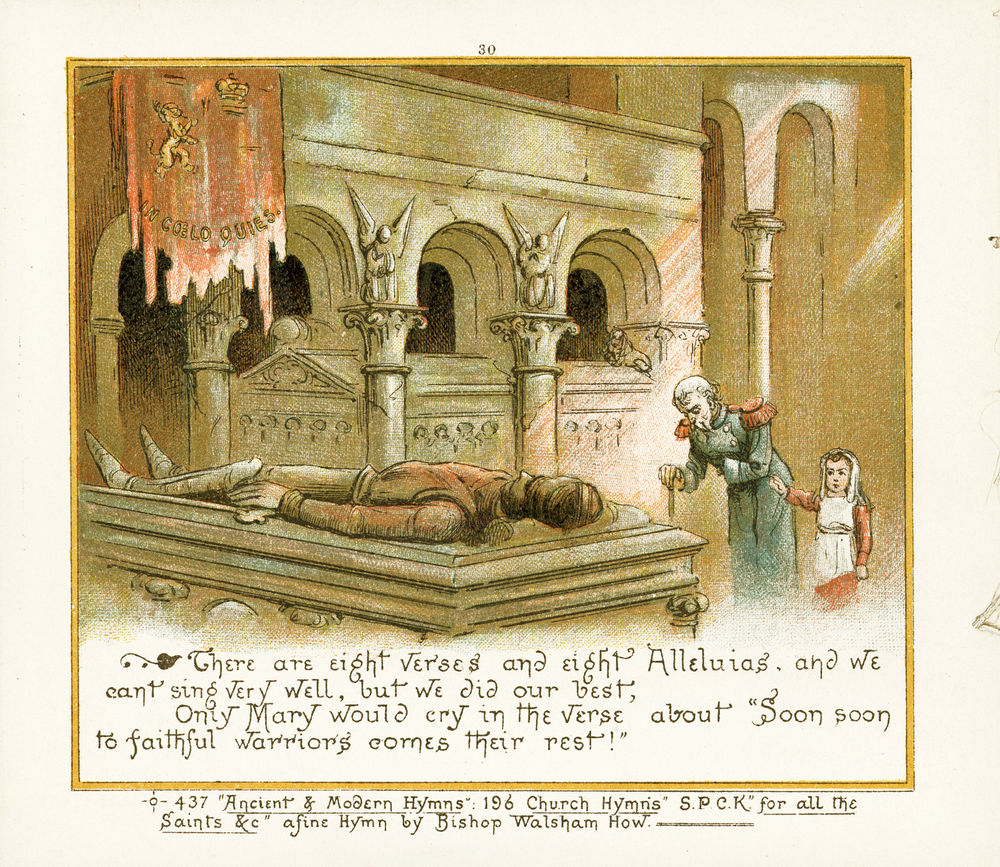 30
IN CŒLO QUIES.
There are eight verses and eight Alleluias, and we
cant sing very well, but we did our best,
Only Mary would cry in the verse about "Soon soon
to faithful warriors comes their rest!"
-o- 437 "Ancient & Modern Hymns": 196 Church Hymns" S.P.C.K." for all the
Saints &c" afine Hymn by Bishop Walsham How.